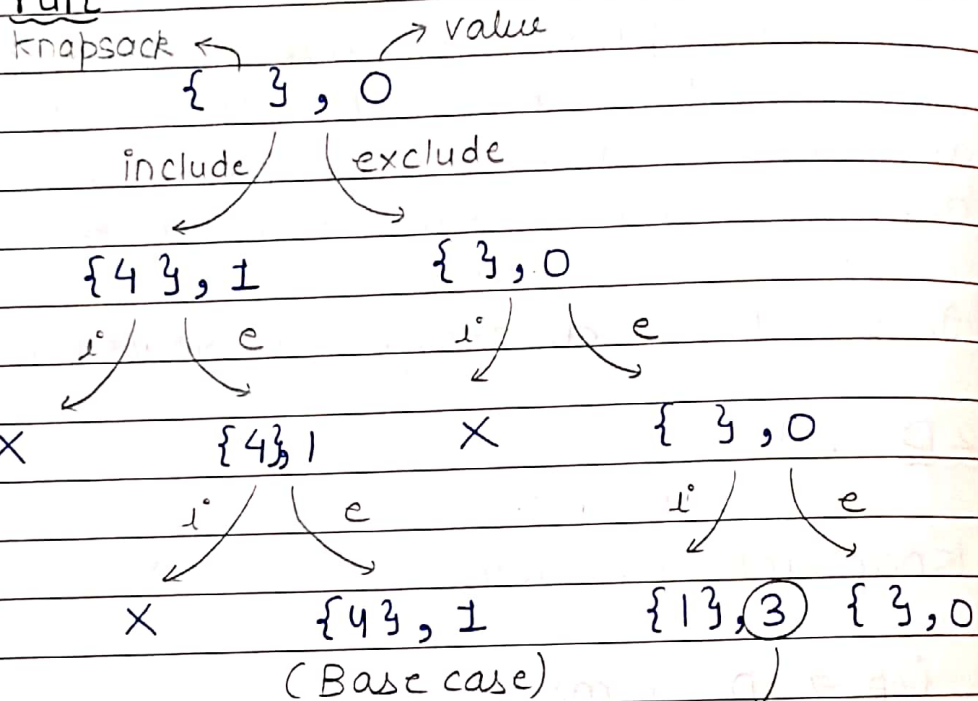 knapsack value
{ }, 0
include exclude
{4}, 1 { }, 0
i e i e
X {4}, 1 X { }, 0
i e i e
X {4}, 1 {1}, 3 { }, 0
(Base case)